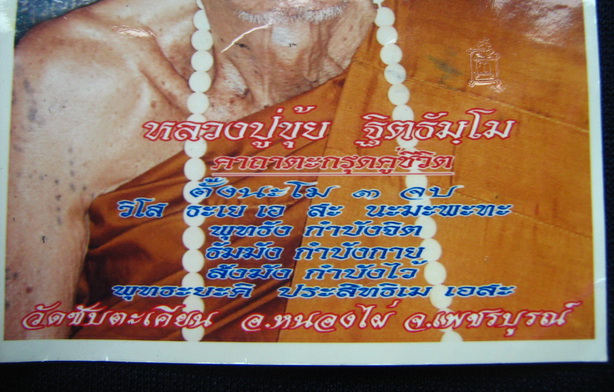 หลวงปู่ขุ้ย ฐิตธัมฺโม
คาถาตะกรุดคู่ชีวิต
ตั้งนะโม ๓ จบ
วิโส ธะเย เอ สะ นะมะพะทะ
พุทธัง กำบังจิต
ธัมมัง กำบังกาย
สังฆัง กำบังไว้
พุทธะยะคิ ประสิทธิเม เอสะ
วัดซับตะเคียน อ.หนองไผ่ จ.เพชรบูรณ์